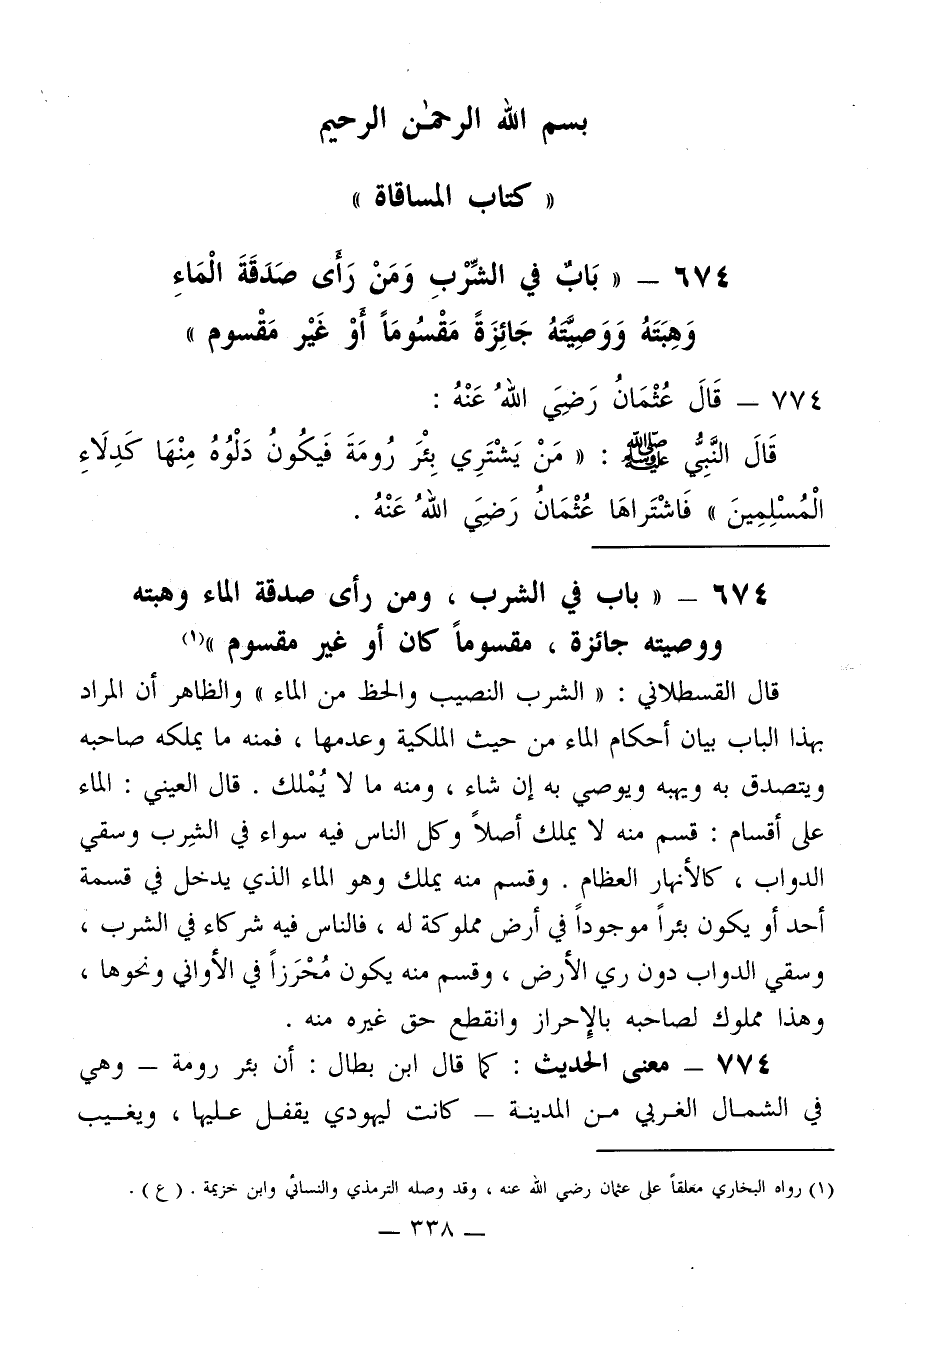 بسم الله الرحمٰن الرحيم
« كتاب المساقاة »
٦٧٤ – « بَابٌ في الشِّرْبِ وَمَنْ رَأَى صَدَقَةَ الْمَاءِ
وَهِبَتَهُ وَوَصِيَّتَهُ جَائِزَةً مَقْسُومَاً أَوْ غَيْر مَقْسوم »
٧٧٤ – قَالَ عُثْمَانُ رَضِيَ اللهُ عَنْهُ :
قَالَ النَّبِيُّ ﷺ : « مَنْ يَشْتَرِي بِئْرَ رُومَةَ فَيَكُونُ دَلْوُهُ مِنْهَا كَدِلَاءِ
الْمُسْلِمِينَ » فَاشْتَراهَا عُثْمَانُ رَضِيَ اللهُ عَنْهُ .
٦٧٤ – « باب في الشرب ، ومن رأى صدقة الماء وهبته
ووصيته جائزة ، مقسوماً كان أو غير مقسوم »(١)
قال القسطلاني : « الشرب النصيب والحظ من الماء » والظاهر أن المراد
بهذا الباب بيان أحكام الماء من حيث الملكية وعدمها ، فمنه ما يملكه صاحبه
ويتصدق به ويهبه ويوصي به إن شاء ، ومنه ما لا يُمْلك . قال العيني : الماء
على أقسام : قسم منه لا يملك أصلاً وكل الناس فيه سواء في الشِرب وسقي
الدواب ، كالأنهار العظام . وقسم منه يملك وهو الماء الذي يدخل في قسمة
أحد أو يكون بئراً موجوداً في أرض مملوكة له ، فالناس فيه شركاء في الشرب ،
وسقي الدواب دون ري الأرض ، وقسم منه يكون مُحْرَزاً في الأواني ونحوها ،
وهذا مملوك لصاحبه بالإحراز وانقطع حق غيره منه .
٧٧٤ – معنى الحديث : كما قال ابن بطال : أن بئر رومة – وهي
في الشمال الغربي من المدينة – كانت ليهودي يقفل عليها ، ويغيب
(١) رواه البخاري معلقاً على عثمان رضي الله عنه ، وقد وصله الترمذي والنسائي وابن خزيمة . ( ع ) .
– ٣٣٨ –